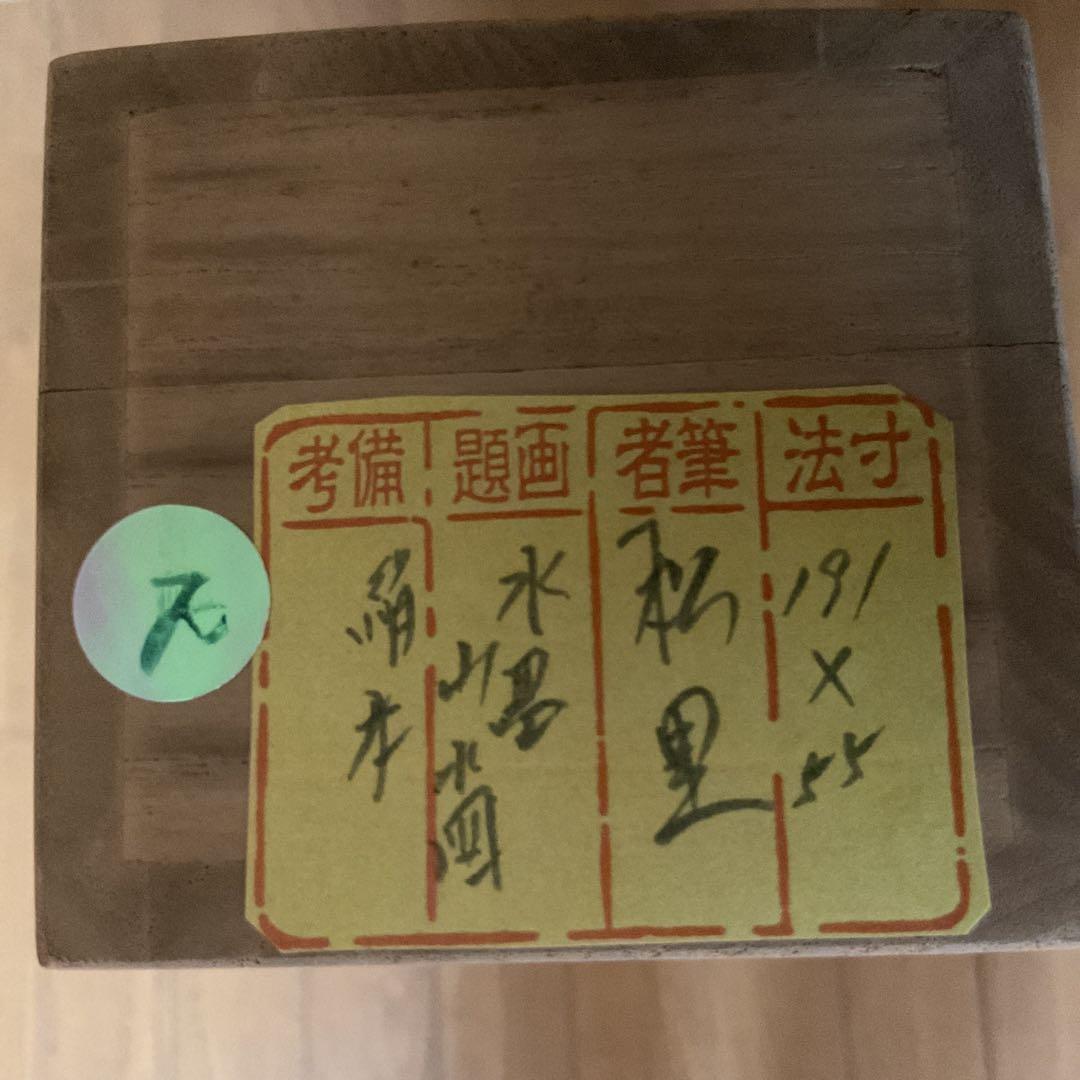 寸法
191
×
55
筆者
松里
画題
水墨
山水図
備考
絹本